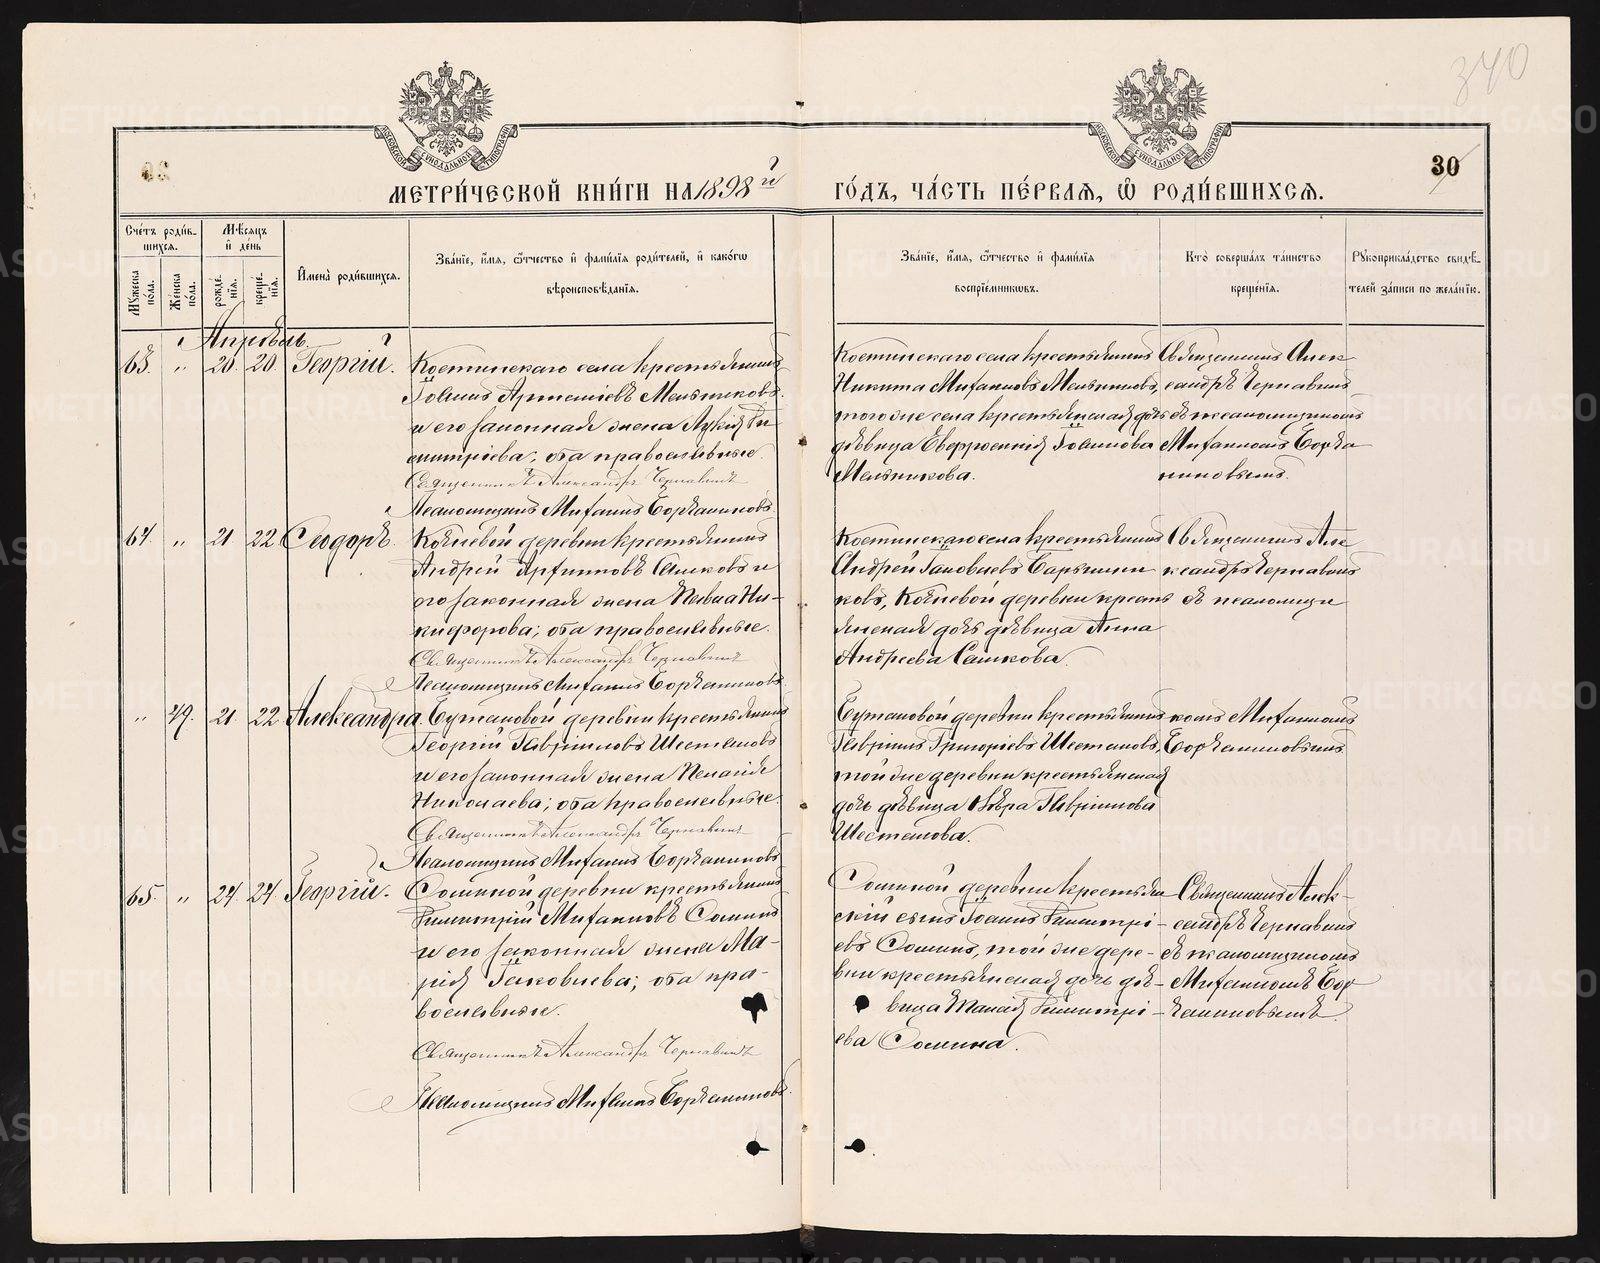 340
30
МЕТРИ́ЧЕСКОЙ КНИ́ГИ НА 1898 й
ГО́ДЪ, ЧА́СТЬ ПЕ́РВАѦ, Ѽ РОДИ́ВШИХСѦ.
Сче́тъ роди́в-
шихсѧ.
Мѣ́сѧцъ
и҆ де́нь
Мꙋ́жеска
по́ла.
Же́нска
по́ла.
рожде́-
нїѧ.
креще́-
нїѧ.
И҆мена̀ роди́вшихсѧ.
Зва́нїе, и҆́мѧ, ѻ҆́тчество и҆ фами́лїѧ роди́телей, и҆ како́гѡ
вѣроисповѣ́данїѧ.
Зва́нїе, и҆́мѧ, ѻ҆́тчество и҆ фами́лїѧ
воспрїе́мникѡвъ.
Кто̀ соверша́лъ та́инство
креще́нїѧ.
Рꙋкоприкла́дство свидѣ́-
телей за́писи по жела́нїю.
Апрѣль.
63. „ 20. 20. Георгій.
Костинскаго села крестьянинъ
Іоаннъ Артеміевъ Мельниковъ
и его законная жена Лукія Ди
митріева; оба православные.
Священникъ Александръ Чернавинъ
Псаломщикъ Михаилъ Боржаниновъ
Костинскаго села крестьянинъ
Никита Михаиловъ Мельниковъ,
того же села крестьянская дочь
дѣвица Евфросинія Іоаннова
Мельникова.
Священникъ Алек
сандръ Чернавинъ
съ псаломщикомъ
Михаиломъ Боржа
ниновымъ.
64. „ 21 22 Ѳеодоръ.
Кочневой деревни крестьянинъ
Андрей Архиповъ Сашковъ и
его законная жена Павла Ни-
кифорова; оба православные.
Священникъ Александръ Чернавинъ
Псаломщикъ Михаилъ Боржаниновъ
Костинскаго села крестьянинъ
Андрей Іаковлевъ Барынни
ковъ, Кочневой деревни кресть
янская дочь дѣвица Анна
Андреева Сашкова.
Священникъ Але
ксандръ Чернавинъ
съ псаломщи
„ 49. 21 22 Александра.
Бутановой деревни крестьянинъ
Георгій Гавріиловъ Шестаковъ
и его законная жена Пелагія
Николаева; оба православные.
Священникъ Александръ Чернавинъ
Псаломщикъ Михаилъ Боржаниновъ
Бутановой деревни крестьянинъ
Гавріилъ Григорьевъ Шестаковъ,
той же деревни крестьянская
дочь дѣвица Вѣра Гавріилова
Шестакова.
комъ Михаиломъ
Боржаниновымъ
65. „ 24. 24. Георгій.
Соминой деревни крестьянинъ
Димитрій Михаиловъ Соминъ
и его законная жена Ма-
рія Іаковлева; оба пра-
вославные.
Священникъ Александръ Чернавинъ
Псаломщикъ Михаилъ Боржаниновъ.
Соминой деревни крестьян
скій сынъ Іоаннъ Димитрі-
евъ Соминъ, той же дере-
вни крестьянская дочь дѣ-
вица Наталія Димитрі-
ева Сомина.
Священникъ Алек-
сандръ Чернавинъ
съ псаломщикомъ
Михаиломъ Бор
жаниновымъ